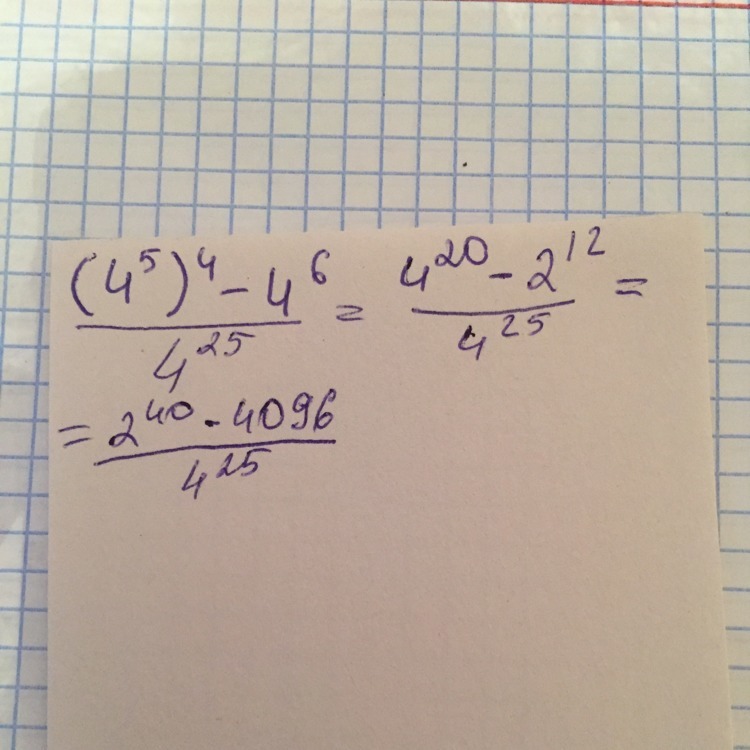 (4⁵)⁴ - 4⁶ / 4²⁵ = 4²⁰ - 2¹² / 4²⁵ =
= 2⁴⁰ - 4096 / 4²⁵